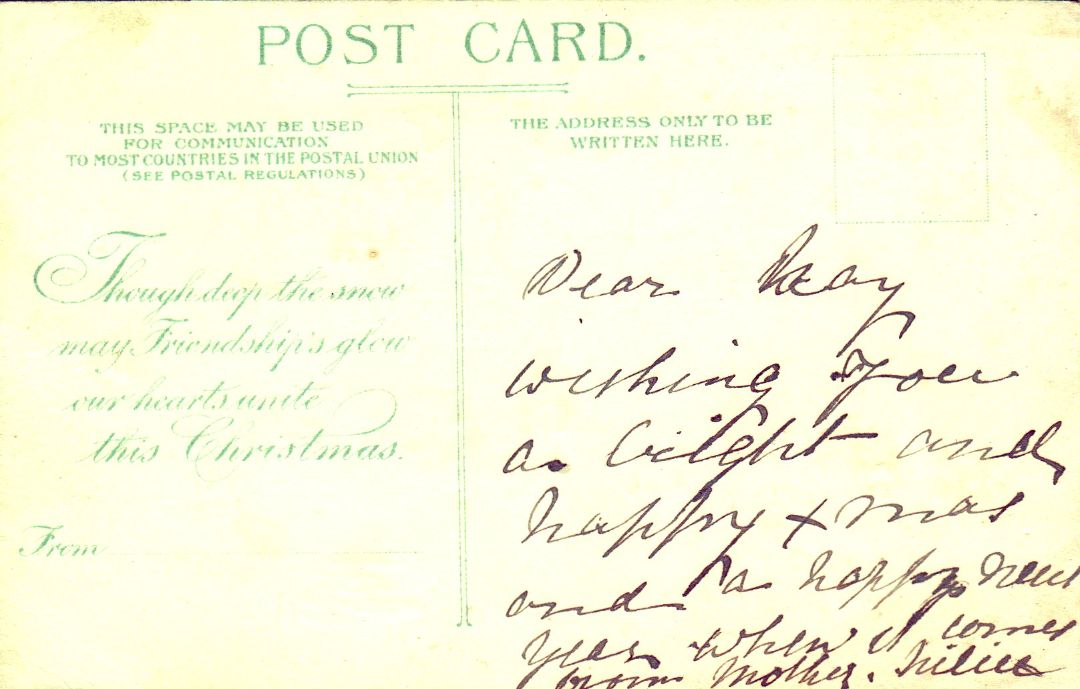 POST CARD.
THIS SPACE MAY BE USED
FOR COMMUNICATION
TO MOST COUNTRIES IN THE POSTAL UNION
(SEE POSTAL REGULATIONS)
Though deep the snow
may Friendship's glow
our hearts unite
this Christmas.
From
THE ADDRESS ONLY TO BE
WRITTEN HERE.
Dear May
wishing you
a bright and
happy xmas
and a happy new
year when it comes
from Mother.